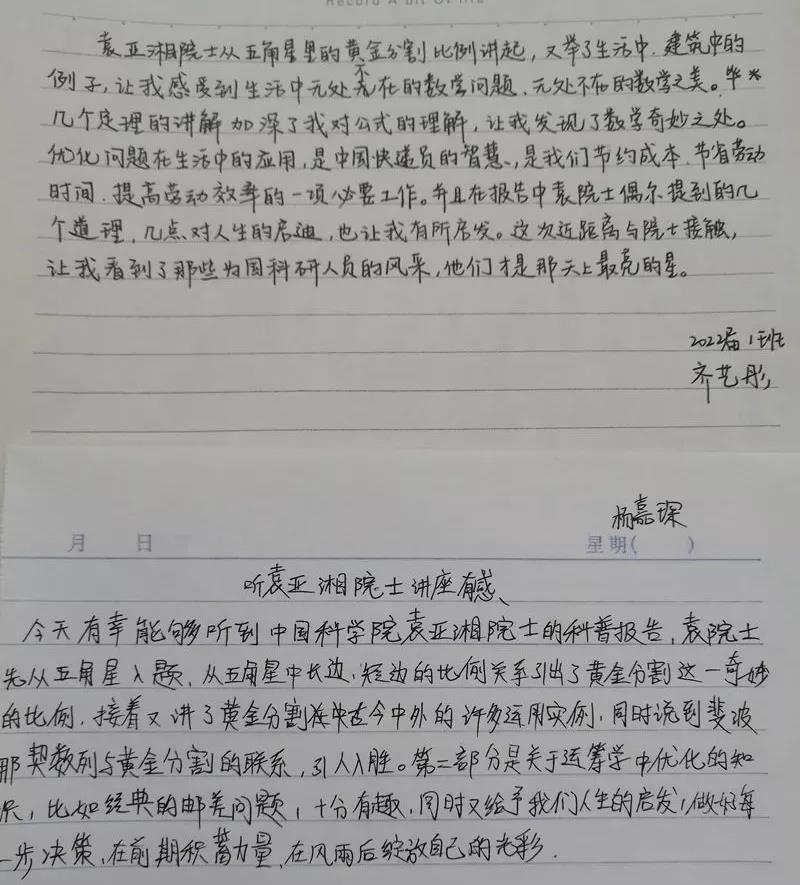 Record A bit of life
袁亚湘院士从五角星里的黄金分割比例讲起，又举了生活中、建筑中的
例子，让我感受到生活中无处不在的数学问题、无处不在的数学之美。
几个定理的讲解加深了我对公式的理解，让我发现了数学奇妙之处。
优化问题在生活中的应用，是中国快递员的智慧，是我们节约成本、节省劳动
时间、提高劳动效率的一项必要工作。并且在报告中袁院士偶尔提到的几
个道理，几点对人生的启迪，也让我有所启发。这次近距离与院士接触，
让我看到了那些为国科研人员的风采，他们才是那天上最亮的星。
2022届1班
齐艺彤
杨嘉琛
月 日 星期( )
听袁亚湘院士讲座有感
今天有幸能够听到中国科学院袁亚湘院士的科普报告，袁院士
先从五角星入题，从五角星中长边、短边的比例关系引出了黄金分割这一奇妙
的比例，接着又讲了黄金分割在古今中外的许多运用实例，同时说到斐波
那契数列与黄金分割的联系，引人入胜。第二部分是关于运筹学中优化的知
识，比如经典的邮差问题，十分有趣，同时又给予我们人生的启发，做好每
一步决策，在前期积蓄力量，在风雨后绽放自己的光彩.